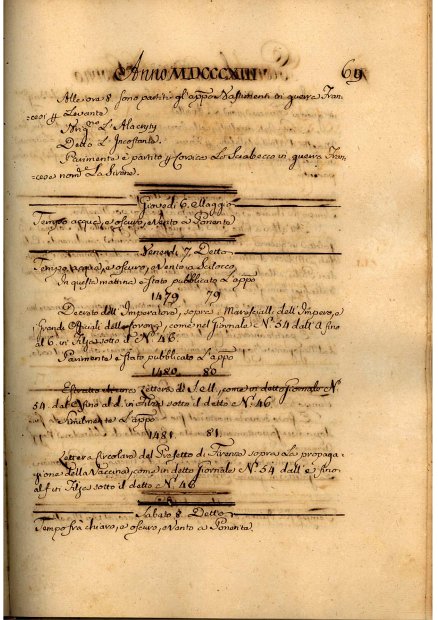 Anno MDCCCXIII 69
Alle ore 8 sono partiti gl'app.o Bastimenti di guerra Fran-
cesi p Levante
Brig.no L'Alacryty
Detto L'Incostante
Parimente è partito p Corsica Lo Sciabecco di guerra Fran-
cese nom.o La Sirene.
Giovedi 6. Maggio
Tempo acque, e oscuro, e Vento a Ponente
Venerdi 7. Detto
Tempo acque, e oscuro, e Vento a Scilocco
In questa mattina è stato pubblicato L'app.o
1479 79
Decreto dell'Imperatore, sopra i Marescialli dell'Impero, e
Grandi Ofiziali della Corona, come nel Giornale N.o 54 dall'A fino
al 6. in Filza sotto il N.o 46.
Parimente è stato pubblicato L'app.o
1480 80
Estratto di Lettera di S. Ecc., come in detto Giornale N.o
54. dal fino al d. in Filza sotto il detto N.o 46
Similmente L'app.o
1481 81.
Lettera circolare del Prefetto di Firenze sopra La propaga-
gione della Vaccina, come in detto Giornale N.o 54 dall'e fino
al f in Filza sotto il detto N.o 46
Sabato 8. Detto
Tempo frà chiaro, e oscuro, e Vento a Ponente.